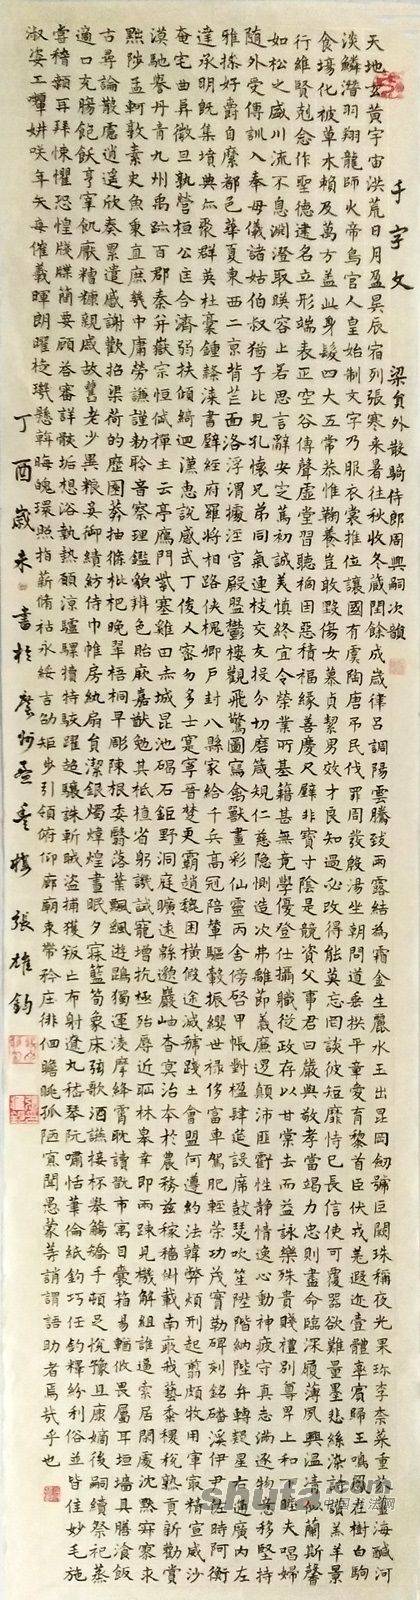 千字文 梁員外散騎侍郎周興嗣次韻
天地玄黃宇宙洪荒日月盈昃辰宿列張寒来暑往秋收冬藏閏餘成歲律呂調陽雲騰致雨露結為霜金生麗水玉出崑岡劍號巨闕珠稱夜光果珍李柰菜重芥薑海鹹河
淡鱗潛羽翔龍師火帝鳥官人皇始制文字乃服衣裳推位讓國有虞陶唐弔民伐罪周發殷湯坐朝問道垂拱平章愛育黎首臣伏戎羌遐邇壹體率賓歸王鳴鳳在樹白駒
食場化被草木賴及萬方盖此身髮四大五常恭惟鞠養豈敢毀傷女慕貞潔男效才良知過必改得能莫忘罔談彼短靡恃己長信使可覆器欲難量墨悲絲染詩讚羔羊景
行維賢剋念作聖德建名立形端表正空谷傳聲虛堂習聽禍因惡積福緣善慶尺璧非寶寸陰是競資父事君曰嚴與敬孝當竭力忠則盡命臨深履薄夙興溫凊似蘭斯馨
如松之盛川流不息淵澄取暎容止若思言辭安定篤初誠美慎終宜令榮業所基籍甚無竟學優登仕攝職從政存以甘棠去而益詠樂殊貴賤禮別尊卑上和下睦夫唱婦
隨外受傅訓入奉母儀諸姑伯叔猶子比兒孔懷兄弟同氣連枝交友投分切磨箴規仁慈隱惻造次弗離節義廉退顛沛匪虧性靜情逸心動神疲守真志滿逐物意移堅持
雅操好爵自縻都邑華夏東西二京背芒面洛浮渭據涇宮殿盤鬱樓觀飛驚圖寫禽獸畫彩仙靈丙舍傍啟甲帳對楹肆筵設席鼓瑟吹笙陞階納陛弁轉疑星右通廣內左
達承明既集墳典亦聚群英杜稾鍾隸漆書壁經府羅將相路俠槐卿戶封八縣家給千兵高冠陪輦驅轂振纓世祿侈富車駕肥輕策功茂實勒碑刻銘磻溪伊尹佐時阿衡
奄宅曲阜微旦孰營桓公匡合濟弱扶傾綺迴漢惠說感武丁俊乂密勿多士寔寧晉楚更霸趙魏困橫假途滅虢踐土會盟何遵約法韓弊煩刑起翦頗牧用軍最精宣威沙
漠馳譽丹青九州禹跡百郡秦并嶽宗恒岱禪主云亭鴈門紫塞雞田赤城昆池碣石鉅野洞庭曠遠綿邈巖岫杳冥治本於農務茲稼穡俶載南畝我藝黍稷稅熟貢新勸賞
黜陟孟軻敦素史魚秉直庶幾中庸勞謙謹勅聆音察理鑑貌辨色貽厥嘉猷勉其祗植省躬譏誡寵增抗極殆辱近恥林皋幸即兩疏見機解組誰逼索居閒處沈默寂寥求
古尋論散慮逍遙欣奏累遣慼謝歡招渠荷的歷園莽抽條枇杷晚翠梧桐早彫陳根委翳落葉飄颻遊鵾獨運凌摩絳霄耽讀翫市寓目囊箱易輶攸畏屬耳垣墻具膳飡飯
適口充腸飽飫烹宰飢厭糟糠親戚故舊老少異粮妾御績紡侍巾帷房紈扇員潔銀燭煒煌晝眠夕寐藍笋象床弦歌酒讌接杯舉觴矯手頓足悅豫且康嫡後嗣續祭祀蒸
嘗稽顙再拜悚懼恐惶牋牒簡要顧答審詳骸垢想浴執熱願涼驢騾犢特駭躍超驤誅斬賊盜捕獲叛亡布射遼丸嵇琴阮嘯恬筆倫紙鈞巧任釣釋紛利俗並皆佳妙毛施
淑姿工顰妍咲年矢每催羲暉朗曜琁璣懸斡晦魄環照指薪脩祜永綏吉劭矩步引領俯仰廊廟束帶矜莊徘徊瞻眺孤陋寡聞愚蒙等誚謂語助者焉哉乎也
丁酉歲末書於 張雄鈞